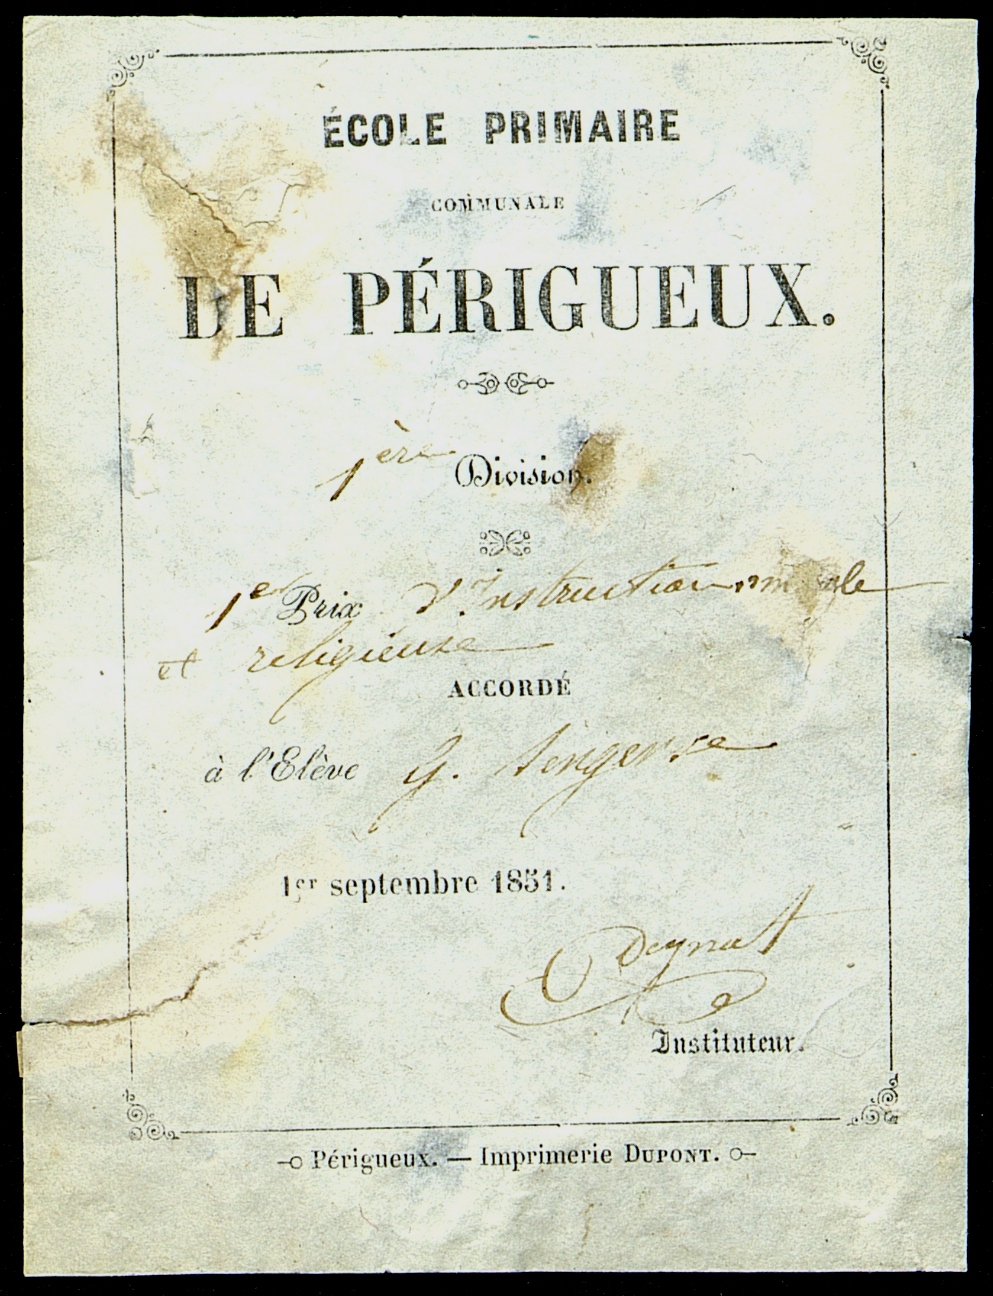 ÉCOLE PRIMAIRE
COMMUNALE
DE PÉRIGUEUX.
1ère Division.
1er Prix d'Instruction morale
et religieuse
ACCORDÉ
à l'Elève G.
1er septembre 1851.
Deynat
Instituteur.
Périgueux. — Imprimerie DUPONT.